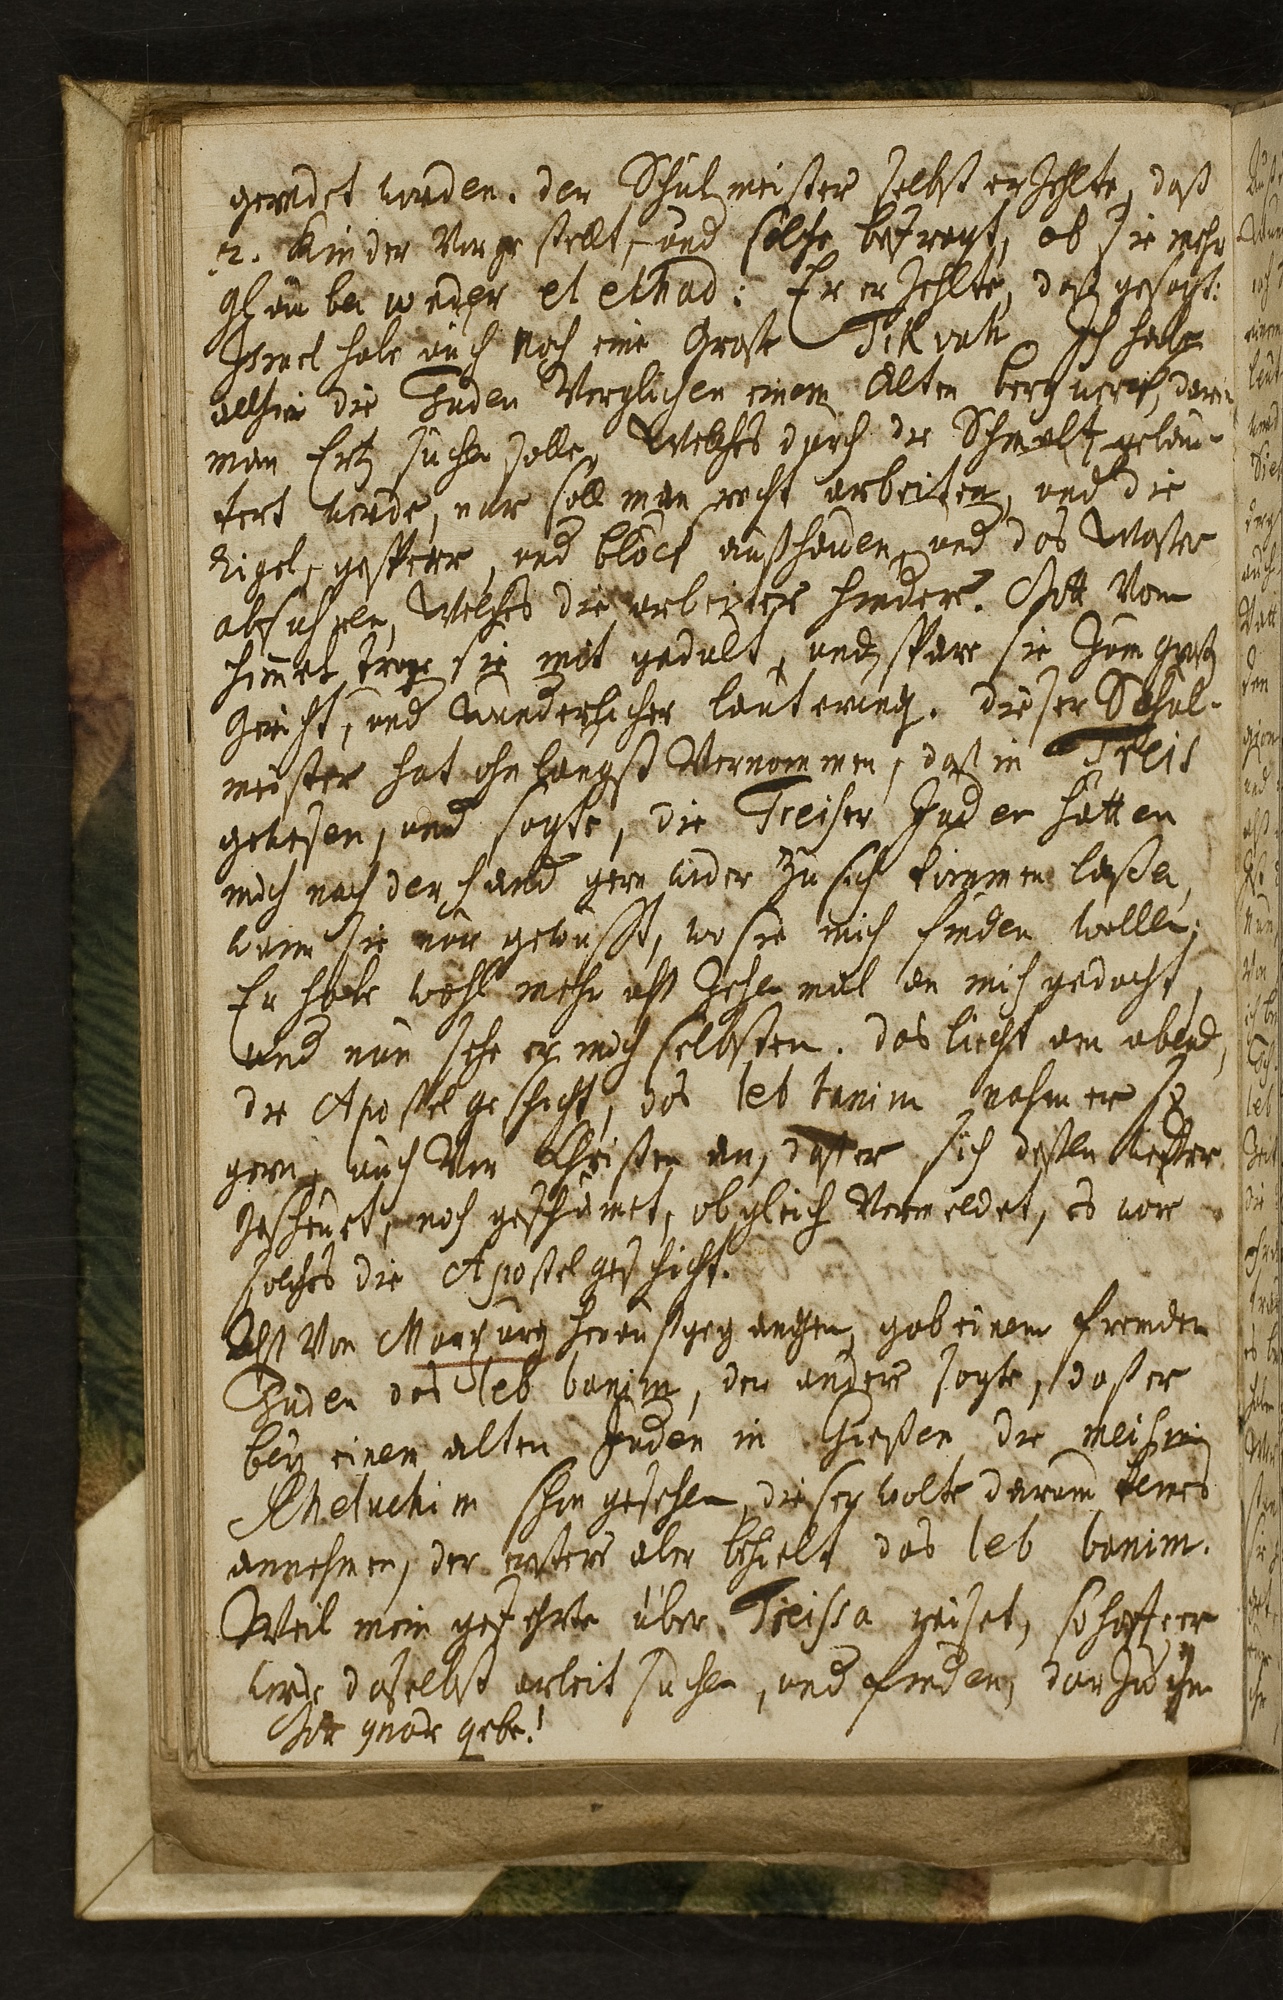 geredet worden. der Schulmeister selbst erzehlte, daß
2. Kinder Vorgestellt, und solche befragt, ob sie mehr
Glauben weder el echad: Er erzehlte, daß gesagt:
Israel habe auch noch eine Große Tikvah. Ich habe
allhier die Juden Verglichen einem Alten bergwerck, darin
man Ertz suchen solle, Welches durch die Schmeltz geläu-
tert werde, nur soll man recht arbeiten, und die
Rigel, gesperr, und blöck außhauen, und das Waßer
abführen, Welches die arbeiter hindere. Gott Vom
himmel trage sie mit gedult, und spare sie zum groß
Gericht, und Wunderlicher läuterung. dieser Schul-
meister hat ohnlängst Vernommen, daß in Treis
gewesen, und sagte, die Treiser Juden hätten
mich nach der hand gern wider zu sich kommen laßen,
wann sie nur gewußt, wo sie mich finden wollen;
Er habe wohl mehr alß zehen mal an mich gedacht,
und nun sehe er mich selbsten. das liecht am abend,
die Apostelgeschicht, das leb banim nahm er so
gern, auch Von Christen an, daß er sich deßen weder
gescheuet, noch geschämet, obgleich Vermeldet, es wäre
solches die Apostelgeschicht.
Alß Von Marpurg herausgegangen, gab einem fremden
Juden das leb banim, der andere sagte, daß er
bey einem alten Juden in Gießen die meisten
Meluchim schon gesehen, dieser wolte darum keines
annehmen, der erstere aber behielt das leb banim.
Weil mein gefehrte über Treissa reiset, so hoffe er
werde daselbst arbeit suchen, und finden, darzu ihm
Gott gnade gebe!